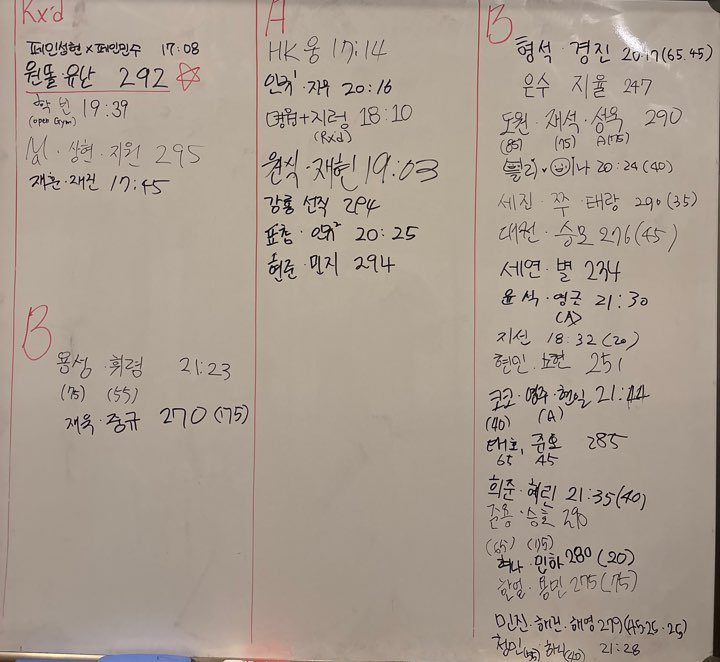 Rx'd
페인성현 x 페인민수 17:08
원똘·유난 292
학번 19:39
(open Gym)
상현·지원 295
재훈·재진 17:45
B
용성·휘령 21:23
(75) (55)
재욱·중규 270 (75)
A
HK 웅 17:14
지우 20:16
+지렁 18:10
(Rxd)
원식·재헌 19:03
강룡 선직 294
표창·인귀² 20:25
현준·민지 294
B
형석·경진 20:17 (65.45)
은수 지율 247
도원·재석·성욱 290
(85) (75) A(75)
나 20:24 (40)
세진·쭈·태랑 290 (35)
대천·승모 276 (45)
세연·별 234
윤석·영근 21:30
(A)
지선 18:32 (20)
현민 251
코코·영주·현일 21:44
(40) (A)
태호, 준오 285
65 45
희준·혜린 21:35 (40)
준용·승호 290
(65) (75)
혁나·민하 280 (20)
용민 275 (75)
민진·해련·해영 279 (45·25·25)
21:28